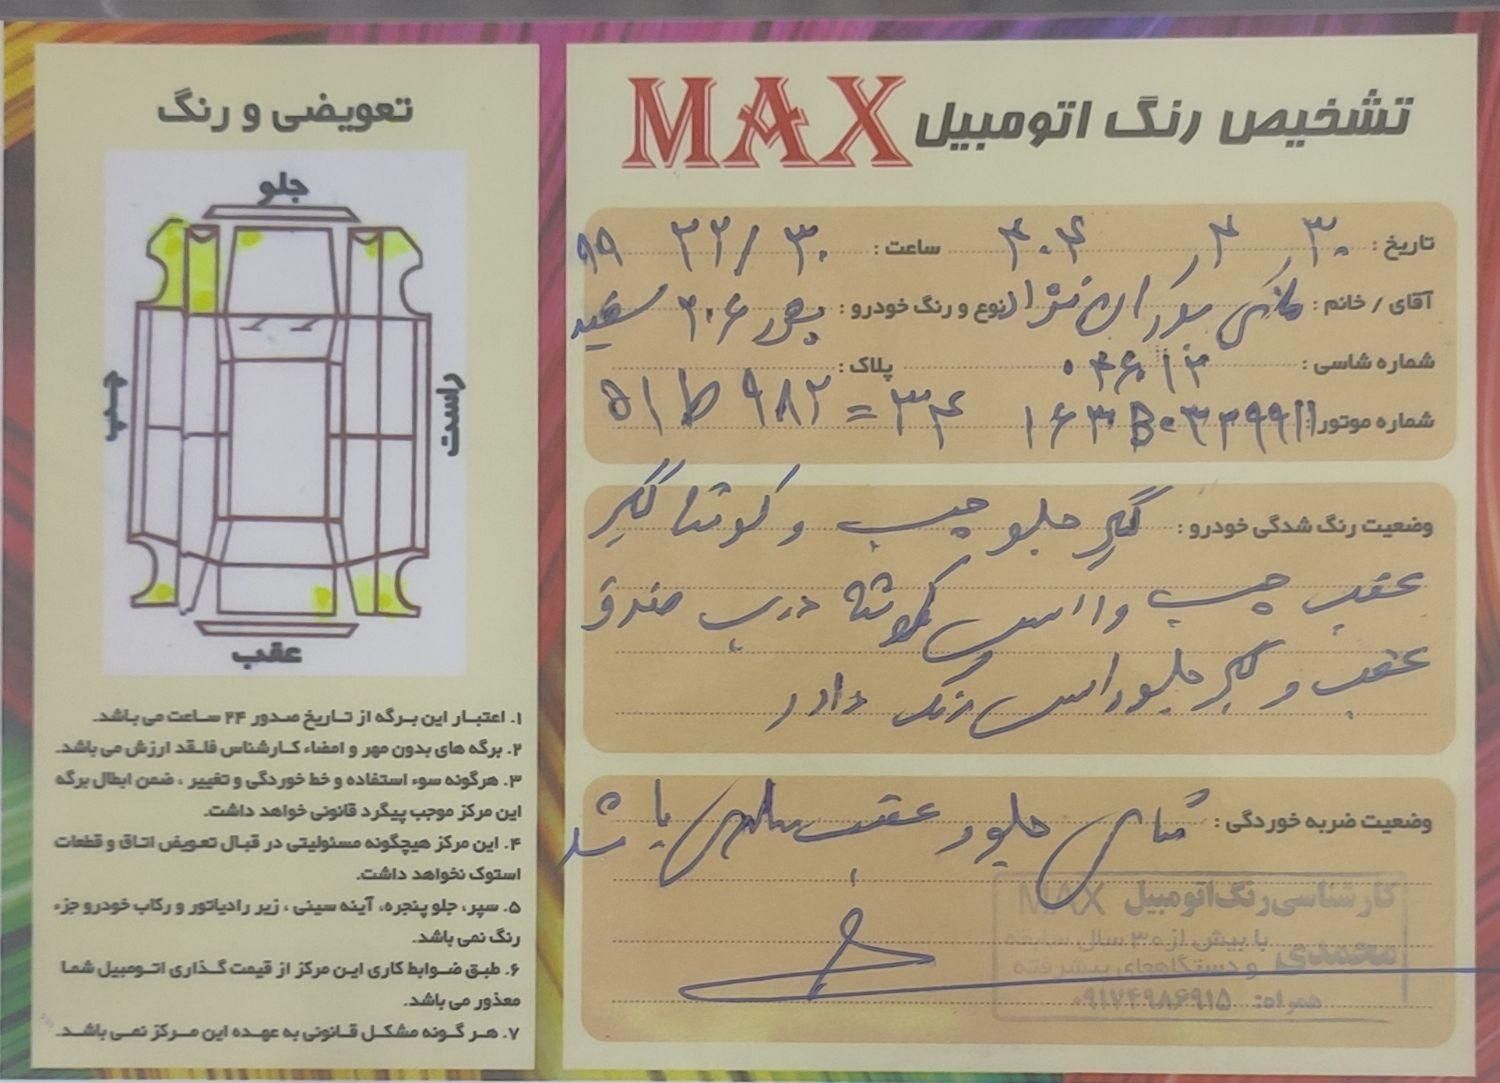 تشخیص رنگ اتومبیل MAX
تاریخ : ۳۰ ۴ ۴۰۴ ساعت : ۲۲/۳۰ ۹۹
آقای / خانم : نوع و رنگ خودرو : ۲۰۶ سفید
شماره شاسی : پلاک :
۵۱ ط ۹۸۲ = ۳۴
شماره موتور :
وضعیت رنگ شدگی خودرو : گلگیر جلو چپ و گوشه گلگیر
عقب چپ و راس گوشه درب صندوق
عقب و گلگیر جلو راس رنگ دارد
وضعیت ضربه خوردگی : شاسی جلو و عقب سالم می باشد
کارشناسی رنگ اتومبیل MAX
محمدی با بیش از ۳۰ سال سابقه
و دستگاههای پیشرفته
همراه: ۰۹۱۷۴۹۸۶۹۱۵
تعویضی و رنگ
جلو
چپ
راست
عقب
۱. اعتبار این برگه از تاریخ صدور ۲۴ ساعت می باشد.
۲. برگه های بدون مهر و امضاء کارشناس فاقد ارزش می باشد.
۳. هرگونه سوء استفاده و خط خوردگی و تغییر ، ضمن ابطال برگه
این مرکز موجب پیگرد قانونی خواهد داشت.
۴. این مرکز هیچگونه مسئولیتی در قبال تعویض اتاق و قطعات
استوک نخواهد داشت.
۵. سپر، جلو پنجره، آینه سینی ، زیر رادیاتور و رکاب خودرو جزء
رنگ نمی باشد.
۶. طبق ضوابط کاری این مرکز از قیمت گذاری اتومبیل شما
معذور می باشد.
۷. هر گونه مشکل قانونی به عهده این مرکز نمی باشد.